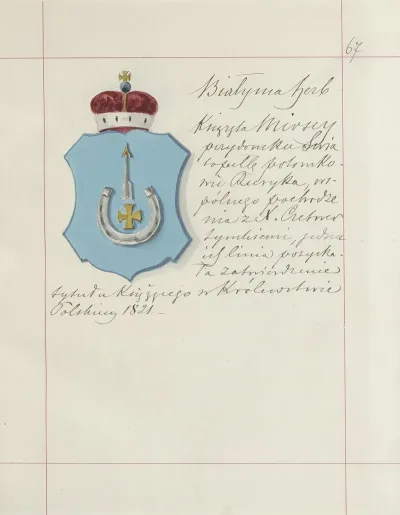 67
Białynia herb
Książęta Mirscy
przydomku Świa
topełk potomko-
wie Ruryka, ws-
pólnego pochodze
nia z X. Czetwer
tyńskiemi, jedna
ich linia pozyska-
ła zatwierdzenie
tytułu Książęcego w Królewstwie
Polskiey 1821.—